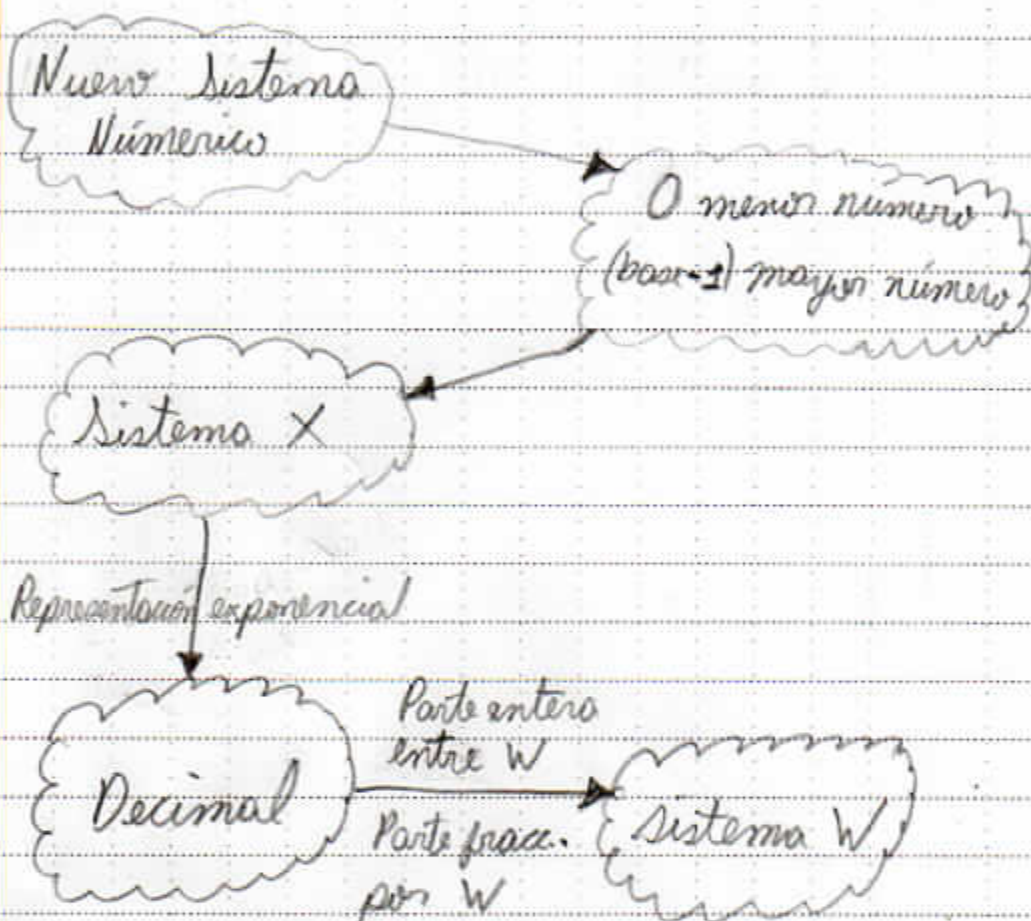 Nuevo Sistema
Númerico
0 menor número
(base-1) mayor número
Sistema X
Representación exponencial
Decimal
Parte entera
entre W
Parte fracc.
por W
Sistema W